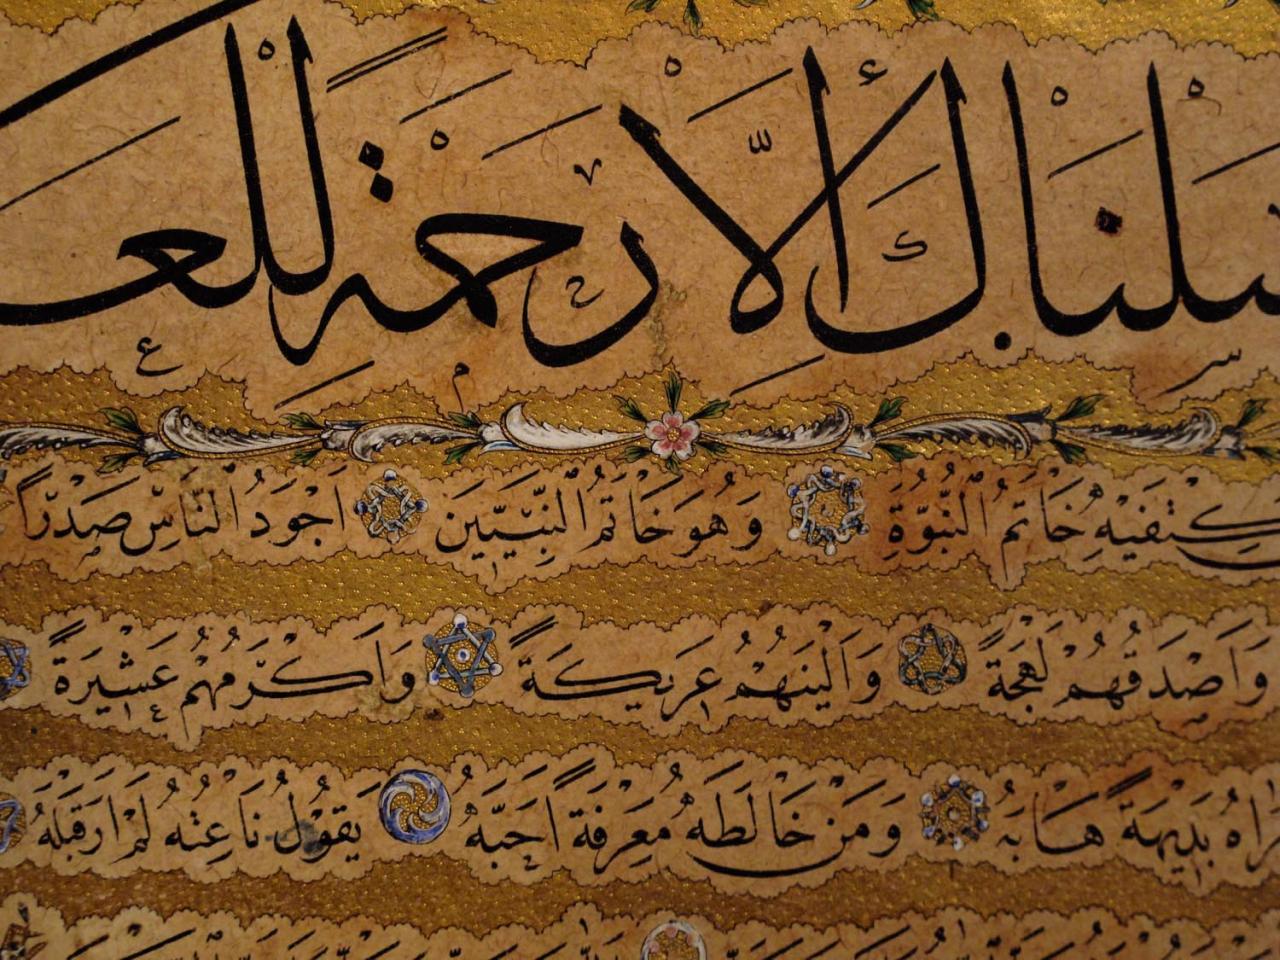 سَلْنَاكَ إِلَّا رَحْمَةً لِلْعَ
كَتِفَيْهِ خَاتَمُ النُّبُوَّةِ وَهُوَ خَاتَمُ النَّبِيِّينَ أَجْوَدُ النَّاسِ صَدْرًا
وَأَصْدَقُهُمْ لَهْجَةً وَأَلْيَنُهُمْ عَرِيكَةً وَأَكْرَمُهُمْ عَشِيرَةً
رَآهُ بَدِيهَةً هَابَهُ وَمَنْ خَالَطَهُ مَعْرِفَةً أَحَبَّهُ يَقُولُ نَاعِتُهُ لَمْ أَرَ قَبْلَهُ